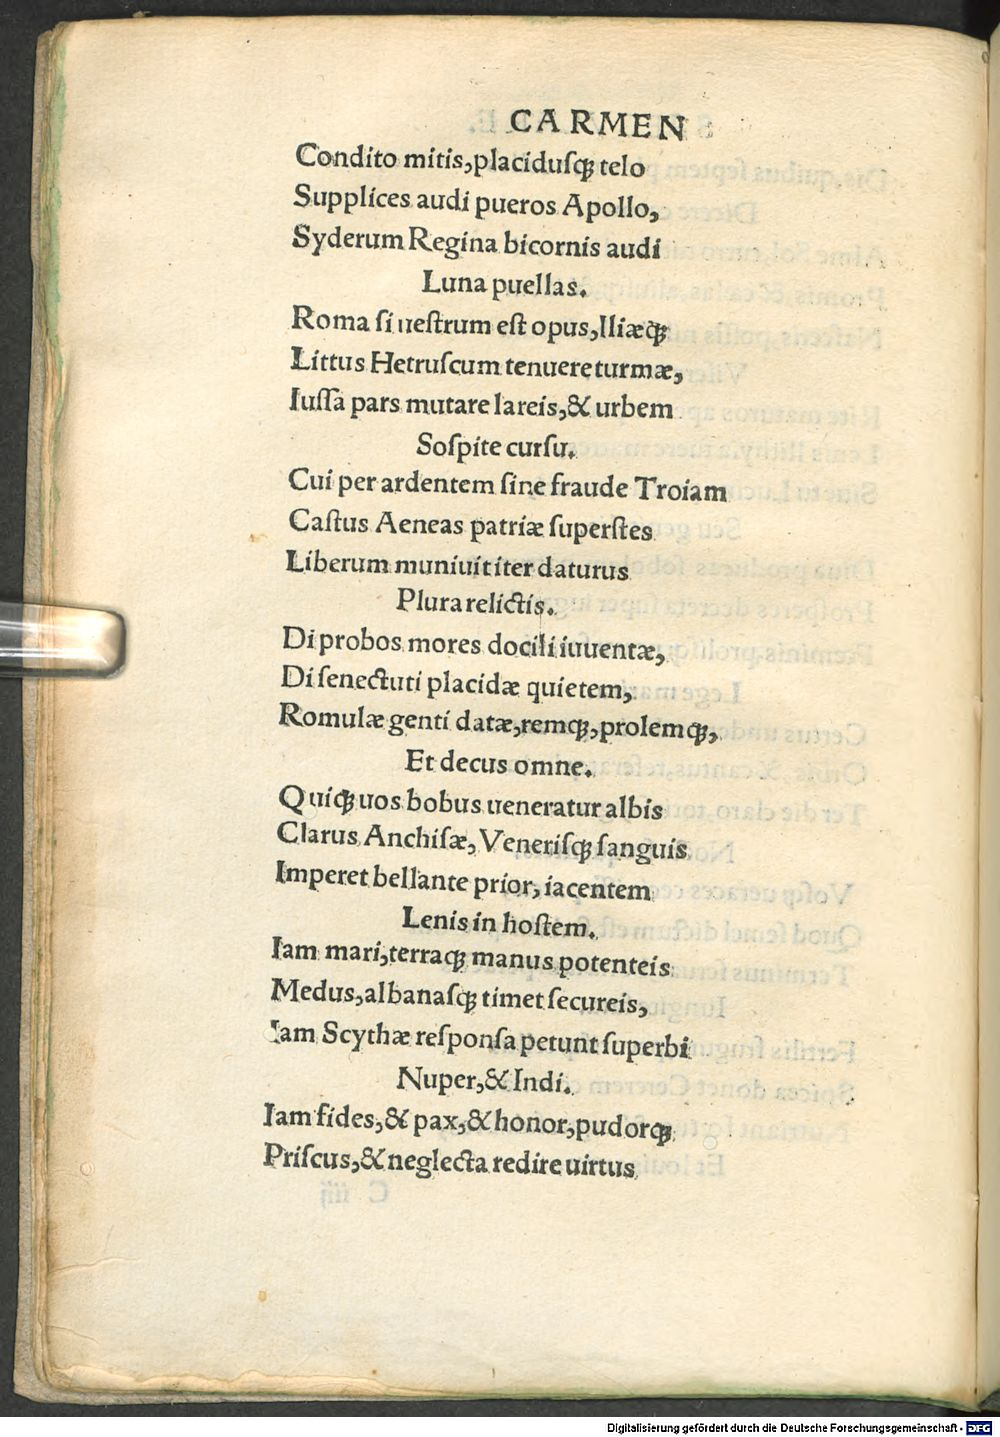 CARMEN
Condito mitis,placiduſqꝫ telo
Supplices audi pueros Apollo,
Syderum Regina bicornis audi
Luna puellas.
Roma ſi ueſtrum eſt opus,Iliæqꝫ
Littus Hetruſcum tenuere turmæ,
Iuſſa pars mutare lareis,& urbem
Soſpite curſu.
Cui per ardentem ſine fraude Troiam
Caſtus Aeneas patriæ ſuperſtes
Liberum muniuit iter daturus
Plura relictis.
Di probos mores docili iuuentæ,
Di ſenectuti placidæ quietem,
Romulæ genti datæ,remqꝫ,prolemqꝫ,
Et decus omne.
Quiqꝫ uos bobus ueneratur albis
Clarus Anchiſæ, Veneriſqꝫ ſanguis
Imperet bellante prior, iacentem
Lenis in hoſtem.
Iam mari,terraqꝫ manus potenteis
Medus,albanaſqꝫ timet ſecureis,
Iam Scythæ reſponſa petunt ſuperbi
Nuper,& Indi.
Iam fides,& pax,& honor,pudorqꝫ
Priſcus,& neglecta redire uirtus
Digitalisierung gefördert durch die Deutsche Forschungsgemeinschaft - DFG